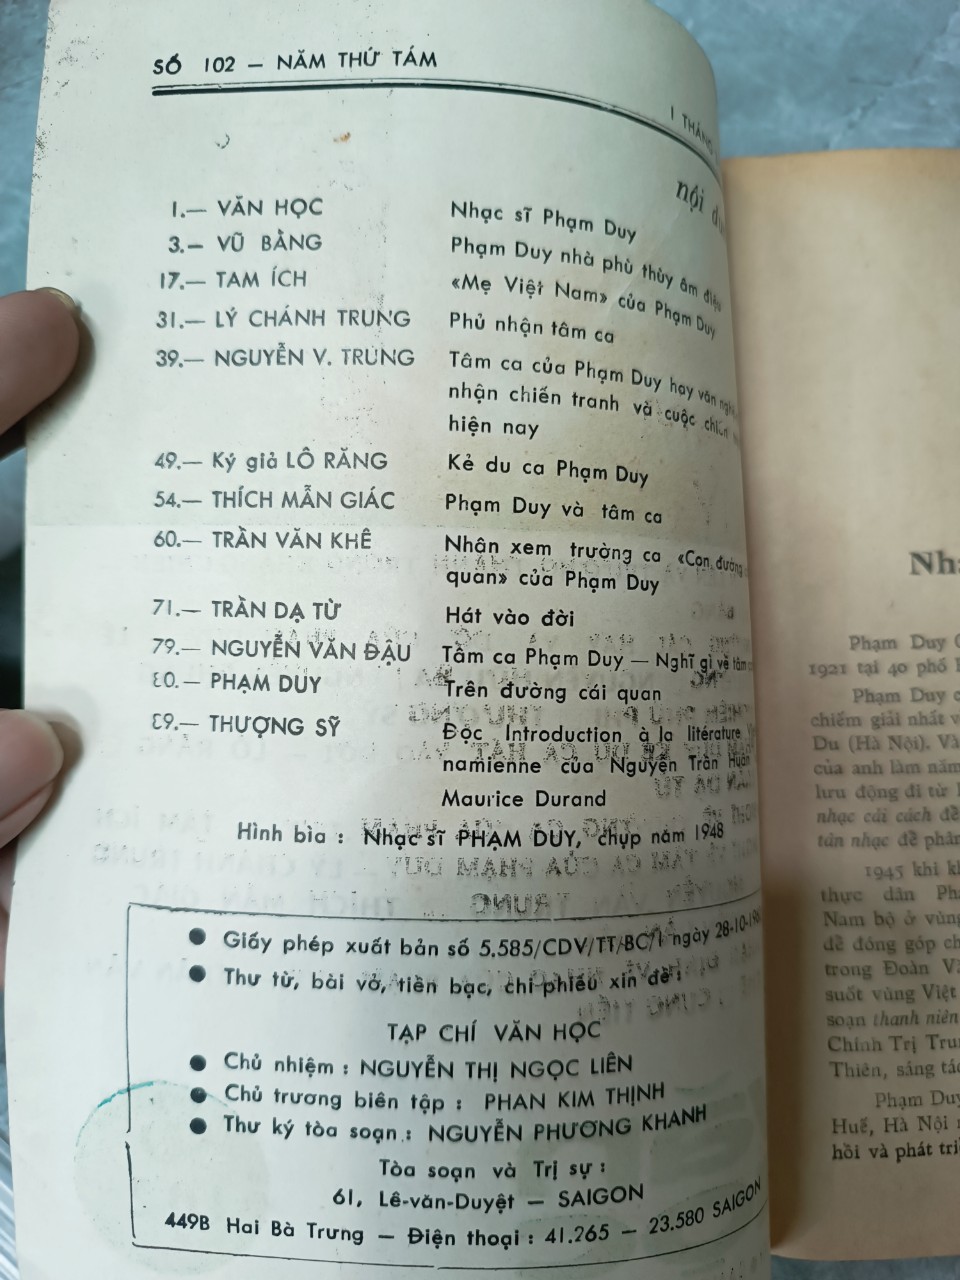 SỐ 102 — NĂM THỨ TÁM
1 THÁNG
nội
1.— VĂN HỌC Nhạc sĩ Phạm Duy
3.— VŨ BẰNG Phạm Duy nhà phù thủy âm điệu
17.— TAM ÍCH «Mẹ Việt Nam» của Phạm Duy
31.— LÝ CHÁNH TRUNG Phủ nhận tâm ca
39.— NGUYỄN V. TRUNG Tâm ca của Phạm Duy hay văn
nhận chiến tranh và cuộc
hiện nay
49.— Ký giả LÔ RĂNG Kẻ du ca Phạm Duy
54.— THÍCH MẪN GIÁC Phạm Duy và tâm ca
60.— TRẦN VĂN KHÊ Nhận xem trường ca «Con đường
quan» của Phạm Duy
71.— TRẦN DẠ TỪ Hát vào đời
79.— NGUYỄN VĂN ĐẬU Tâm ca Phạm Duy — Nghĩ gì về tâm
80.— PHẠM DUY Trên đường cái quan
89.— THƯỢNG SỸ Đọc Introduction à la litérature
namienne của Nguyễn Trần Huân
Maurice Durand
Hình bìa : Nhạc sĩ PHẠM DUY, chụp năm 1948
● Giấy phép xuất bản số 5.585/CDV/TT/BC/1 ngày 28-10-
● Thư từ, bài vở, tiền bạc, chi phiếu xin đề :
TẠP CHÍ VĂN HỌC
● Chủ nhiệm : NGUYỄN THỊ NGỌC LIÊN
● Chủ trương biên tập : PHAN KIM THỊNH
● Thư ký tòa soạn : NGUYỄN PHƯƠNG KHANH
Tòa soạn và Trị sự :
61, Lê-văn-Duyệt — SAIGON
449B Hai Bà Trưng — Điện thoại : 41.265 — 23.580 SAIGON
Phạm Duy
1921 tại 40 phố
Phạm Duy
chiếm giải nhất
Du (Hà Nội). Và
của anh làm năm
lưu động đi từ
nhạc cải cách để
tân nhạc để phân
1945 khi
thực dân
Nam bộ ở vùng
để đóng góp
trong Đoàn
suốt vùng Việt
soạn thanh niên
Chính Trị
Thiên, sáng tác
Phạm Duy
Huế, Hà Nội
hồi và phát